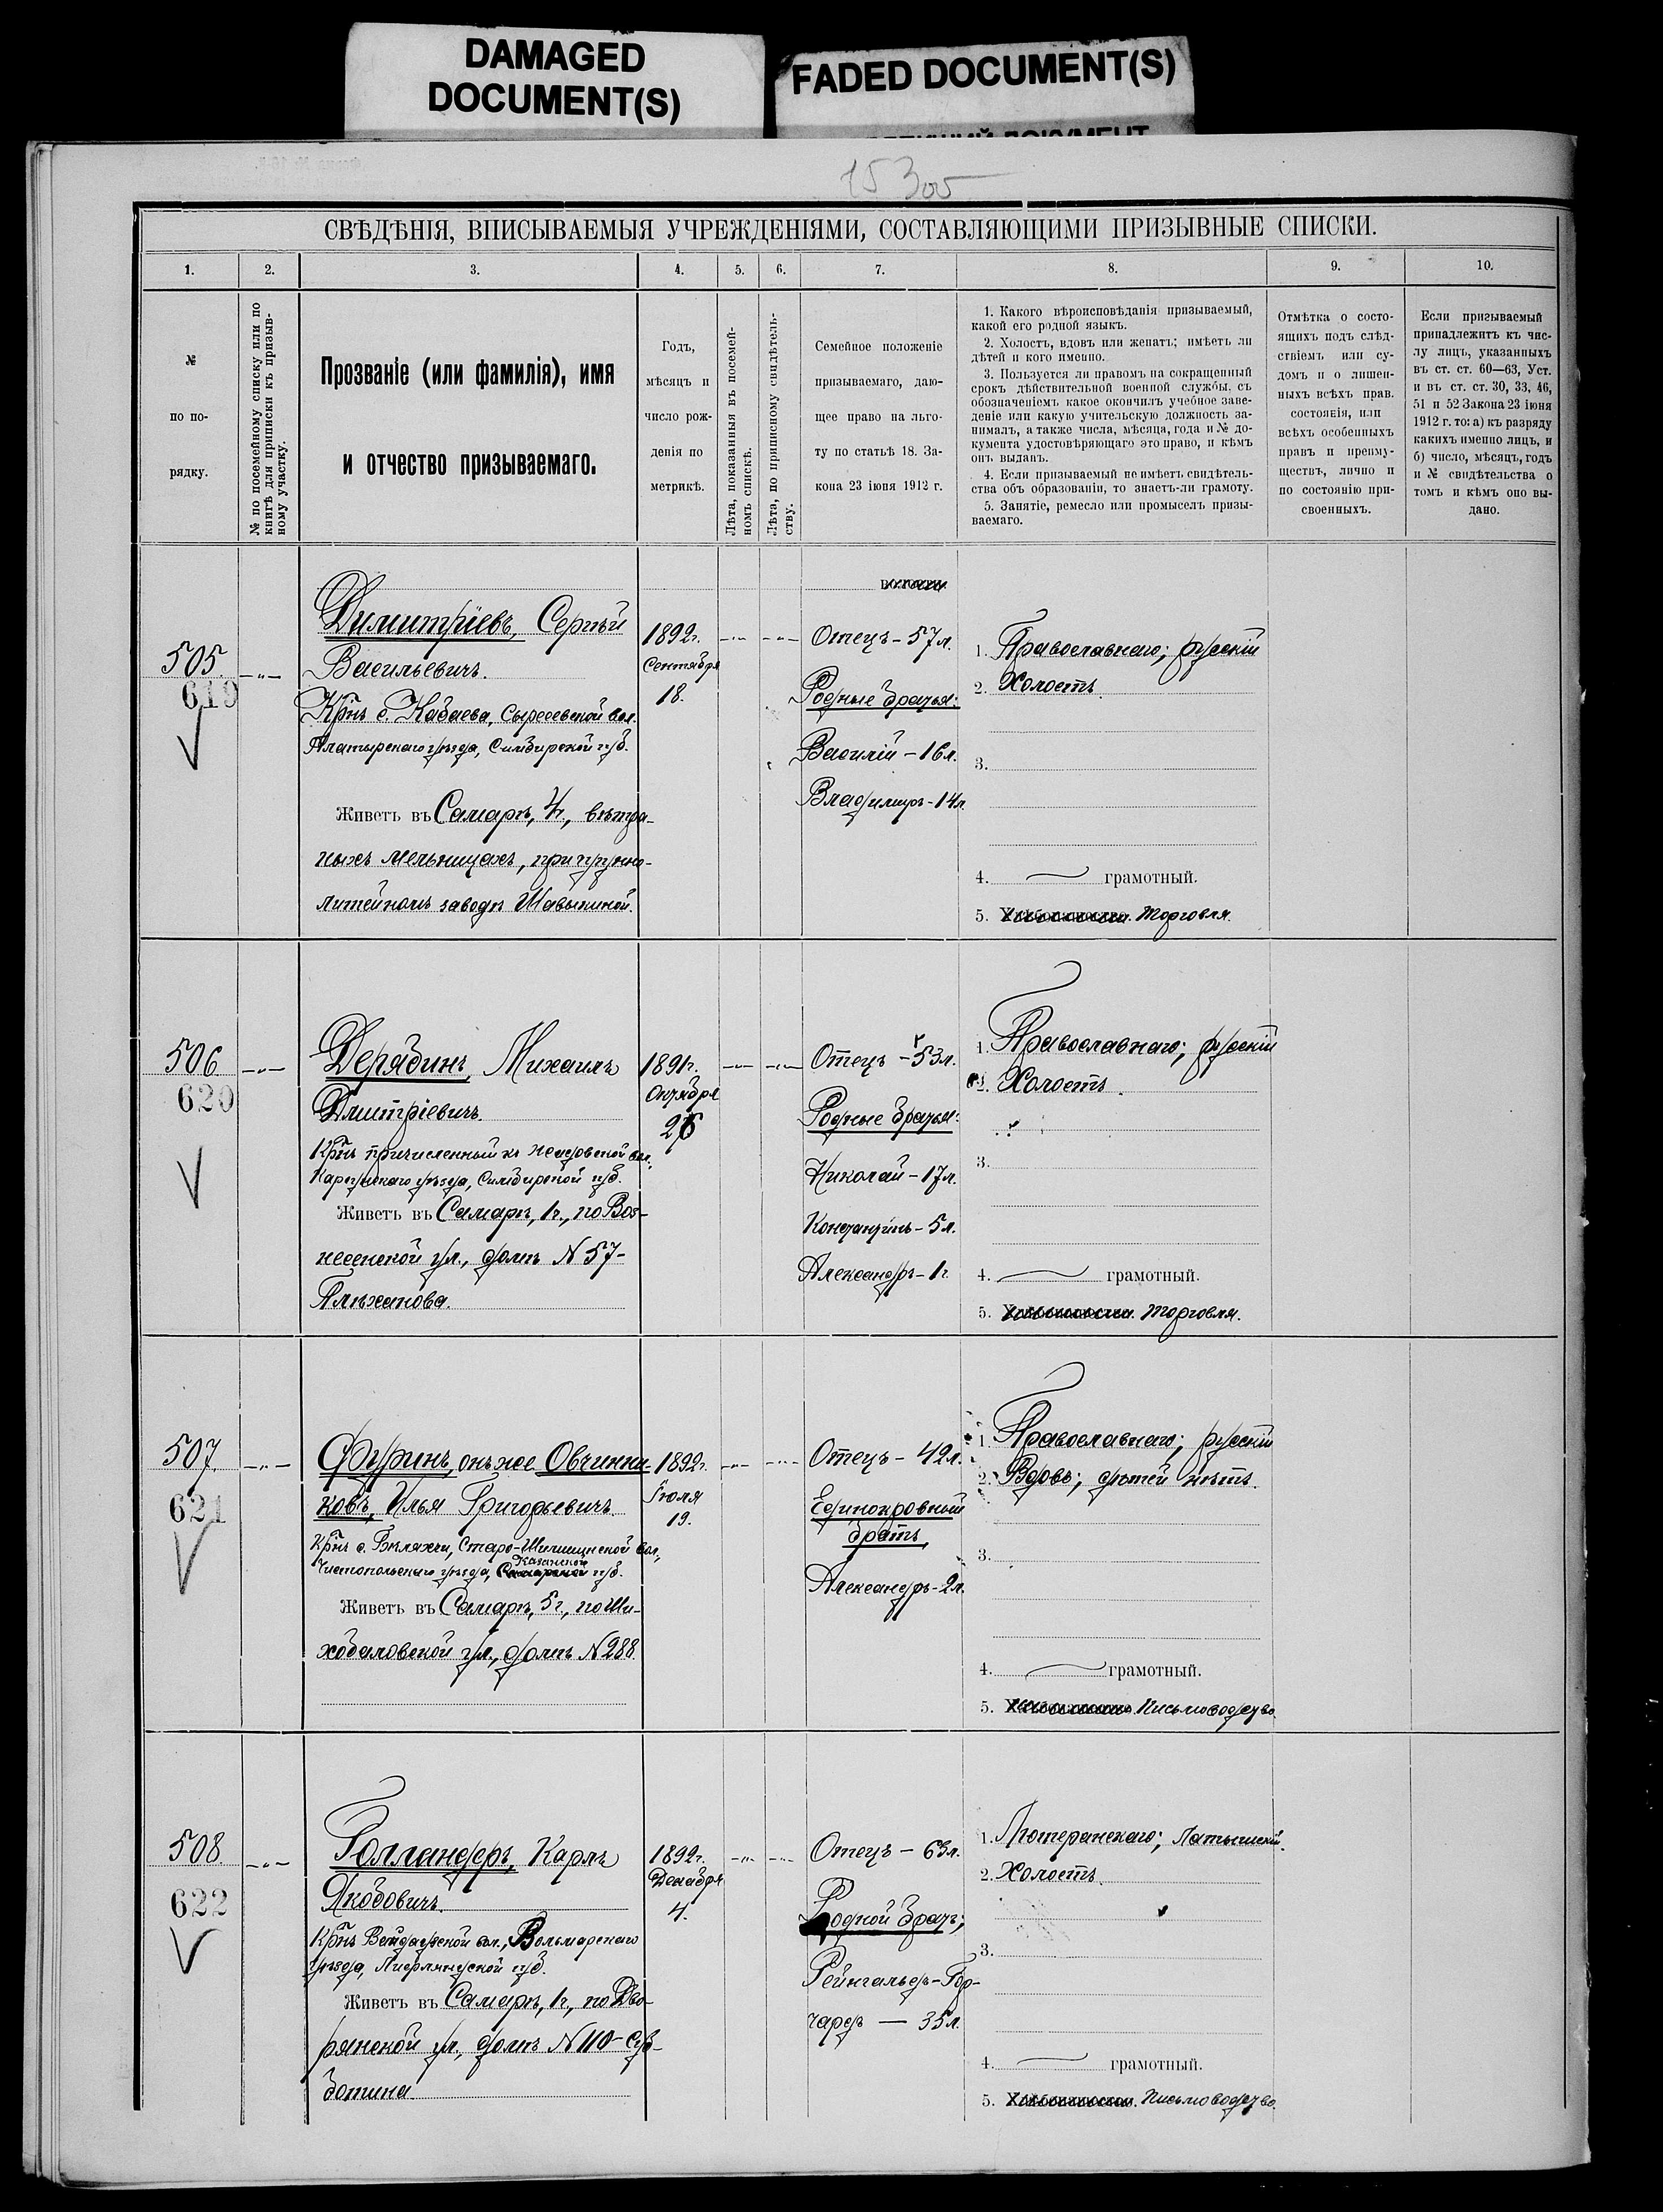 DAMAGED
DOCUMENT(S)
FADED DOCUMENT(S)
15 305
СВѢДѢНІЯ, ВПИСЫВАЕМЫЯ УЧРЕЖДЕНІЯМИ, СОСТАВЛЯЮЩИМИ ПРИЗЫВНЫЕ СПИСКИ.
1. 2. 3. 4. 5. 6. 7. 8. 9. 10.
№
по по-
рядку.
№ по посемейному списку или по
книгѣ для приписки къ призыв-
ному участку.
Прозваніе (или фамилія), имя
и отчество призываемаго.
Годъ,
мѣсяцъ и
число рож-
денія по
метрикѣ.
Лѣта, показанныя въ посемей-
номъ спискѣ.
Лѣта, по приписному свидѣтель-
ству.
Семейное положеніе
призываемаго, даю-
щее право на льго-
ту по статьѣ 18. За-
кона 23 іюня 1912 г.
1. Какого вѣроисповѣданія призываемый,
какой его родной языкъ.
2. Холостъ, вдовъ или женатъ; имѣетъ ли
дѣтей и кого именно.
3. Пользуется ли правомъ на сокращенный
срокъ дѣйствительной военной службы, съ
обозначеніемъ какое окончилъ учебное заве-
деніе или какую учительскую должность за-
нималъ, а также числа, мѣсяца, года и № до-
кумента удостовѣряющаго это право, и кѣмъ
онъ выданъ.
4. Если призываемый не имѣетъ свидѣтель-
ства объ образованіи, то знаетъ-ли грамоту.
5. Занятіе, ремесло или промыселъ призы-
ваемаго.
Отмѣтка о состо-
ящихъ подъ слѣд-
ствіемъ или су-
домъ и о лишен-
ныхъ всѣхъ прав.
состоянія, или
всѣхъ особенныхъ
правъ и преиму-
ществъ, лично и
по состоянію при-
своенныхъ.
Если призываемый
принадлежитъ къ чис-
лу лицъ, указанныхъ
въ ст. ст. 60—63, Уст.
и въ ст. ст. 30, 33, 46,
51 и 52 Закона 23 іюня
1912 г. то: а) къ разряду
какихъ именно лицъ, и
б) число, мѣсяцъ, годъ
и № свидѣтельства о
томъ и кѣмъ оно вы-
дано.
505.
619
Димитріевъ, Сергѣй
Васильевичъ.
Крнъ с. Кабаева, Сыресевской вол.
Алатырскаго уѣзда, Симбирской губ.
Живетъ въ Самарѣ, 4ч., вѣтря-
ныхъ мельницахъ, при чугунно-
литейномъ заводѣ Шавыкиной.
1892г.
Сентября
18.
Отецъ – 57л.
Родные братья:
Василій – 16л.
Владимиръ – 14л.
1. Православнаго; русскій
2. Холостъ.
3.
4. грамотный.
5. Торговля.
506
620
Дерябинъ, Михаилъ
Дмитріевичъ.
Крнъ причисленный къ вол.,
Карсунскаго уѣзда, Симбирской губ.
Живетъ въ Самарѣ, 1ч., по Воз-
несенской ул., домъ N 57–
Плѣханова.
1891г.
Октября
26
Отецъ – 53л.
Родные братья:
Николай – 17л.
Константинъ – 5л.
Александръ – 1г
1. Православнаго; русскій
2. Холостъ.
3.
4. грамотный.
5. Торговля.
507.
621
онъ же Овчинни-
ковъ, Илья Григорьевичъ.
Крнъ с. вол.,
Чистопольскаго уѣзда, Казанской губ.
Живетъ въ Самарѣ, 5ч., по Ши-
хобаловской ул., домъ N 288.
1892г.
Іюля
19.
Отецъ – 42л.
Единокровный
братъ,
Александръ – 2л.
1. Православнаго; русскій
2. Вдовъ; дѣтей нѣтъ.
3.
4. грамотный.
5. Письмоводство.
508.
622
Голландеръ, Карлъ
Якобовичъ.
Крнъ вол., Вольмарскаго
уѣзда, Лифляндской губ.
Живетъ въ Самарѣ, 1ч., по Дво-
рянской ул., домъ N 110 – Суб-
ботина.
1892г.
Декабря
4.
Отецъ – 63л.
Родной братъ;
Рейнгольдъ-Гор-
чардъ — 35л.
1. Лютеранскаго; Латышскій.
2. Холостъ.
3.
4. грамотный.
5. Письмоводство.